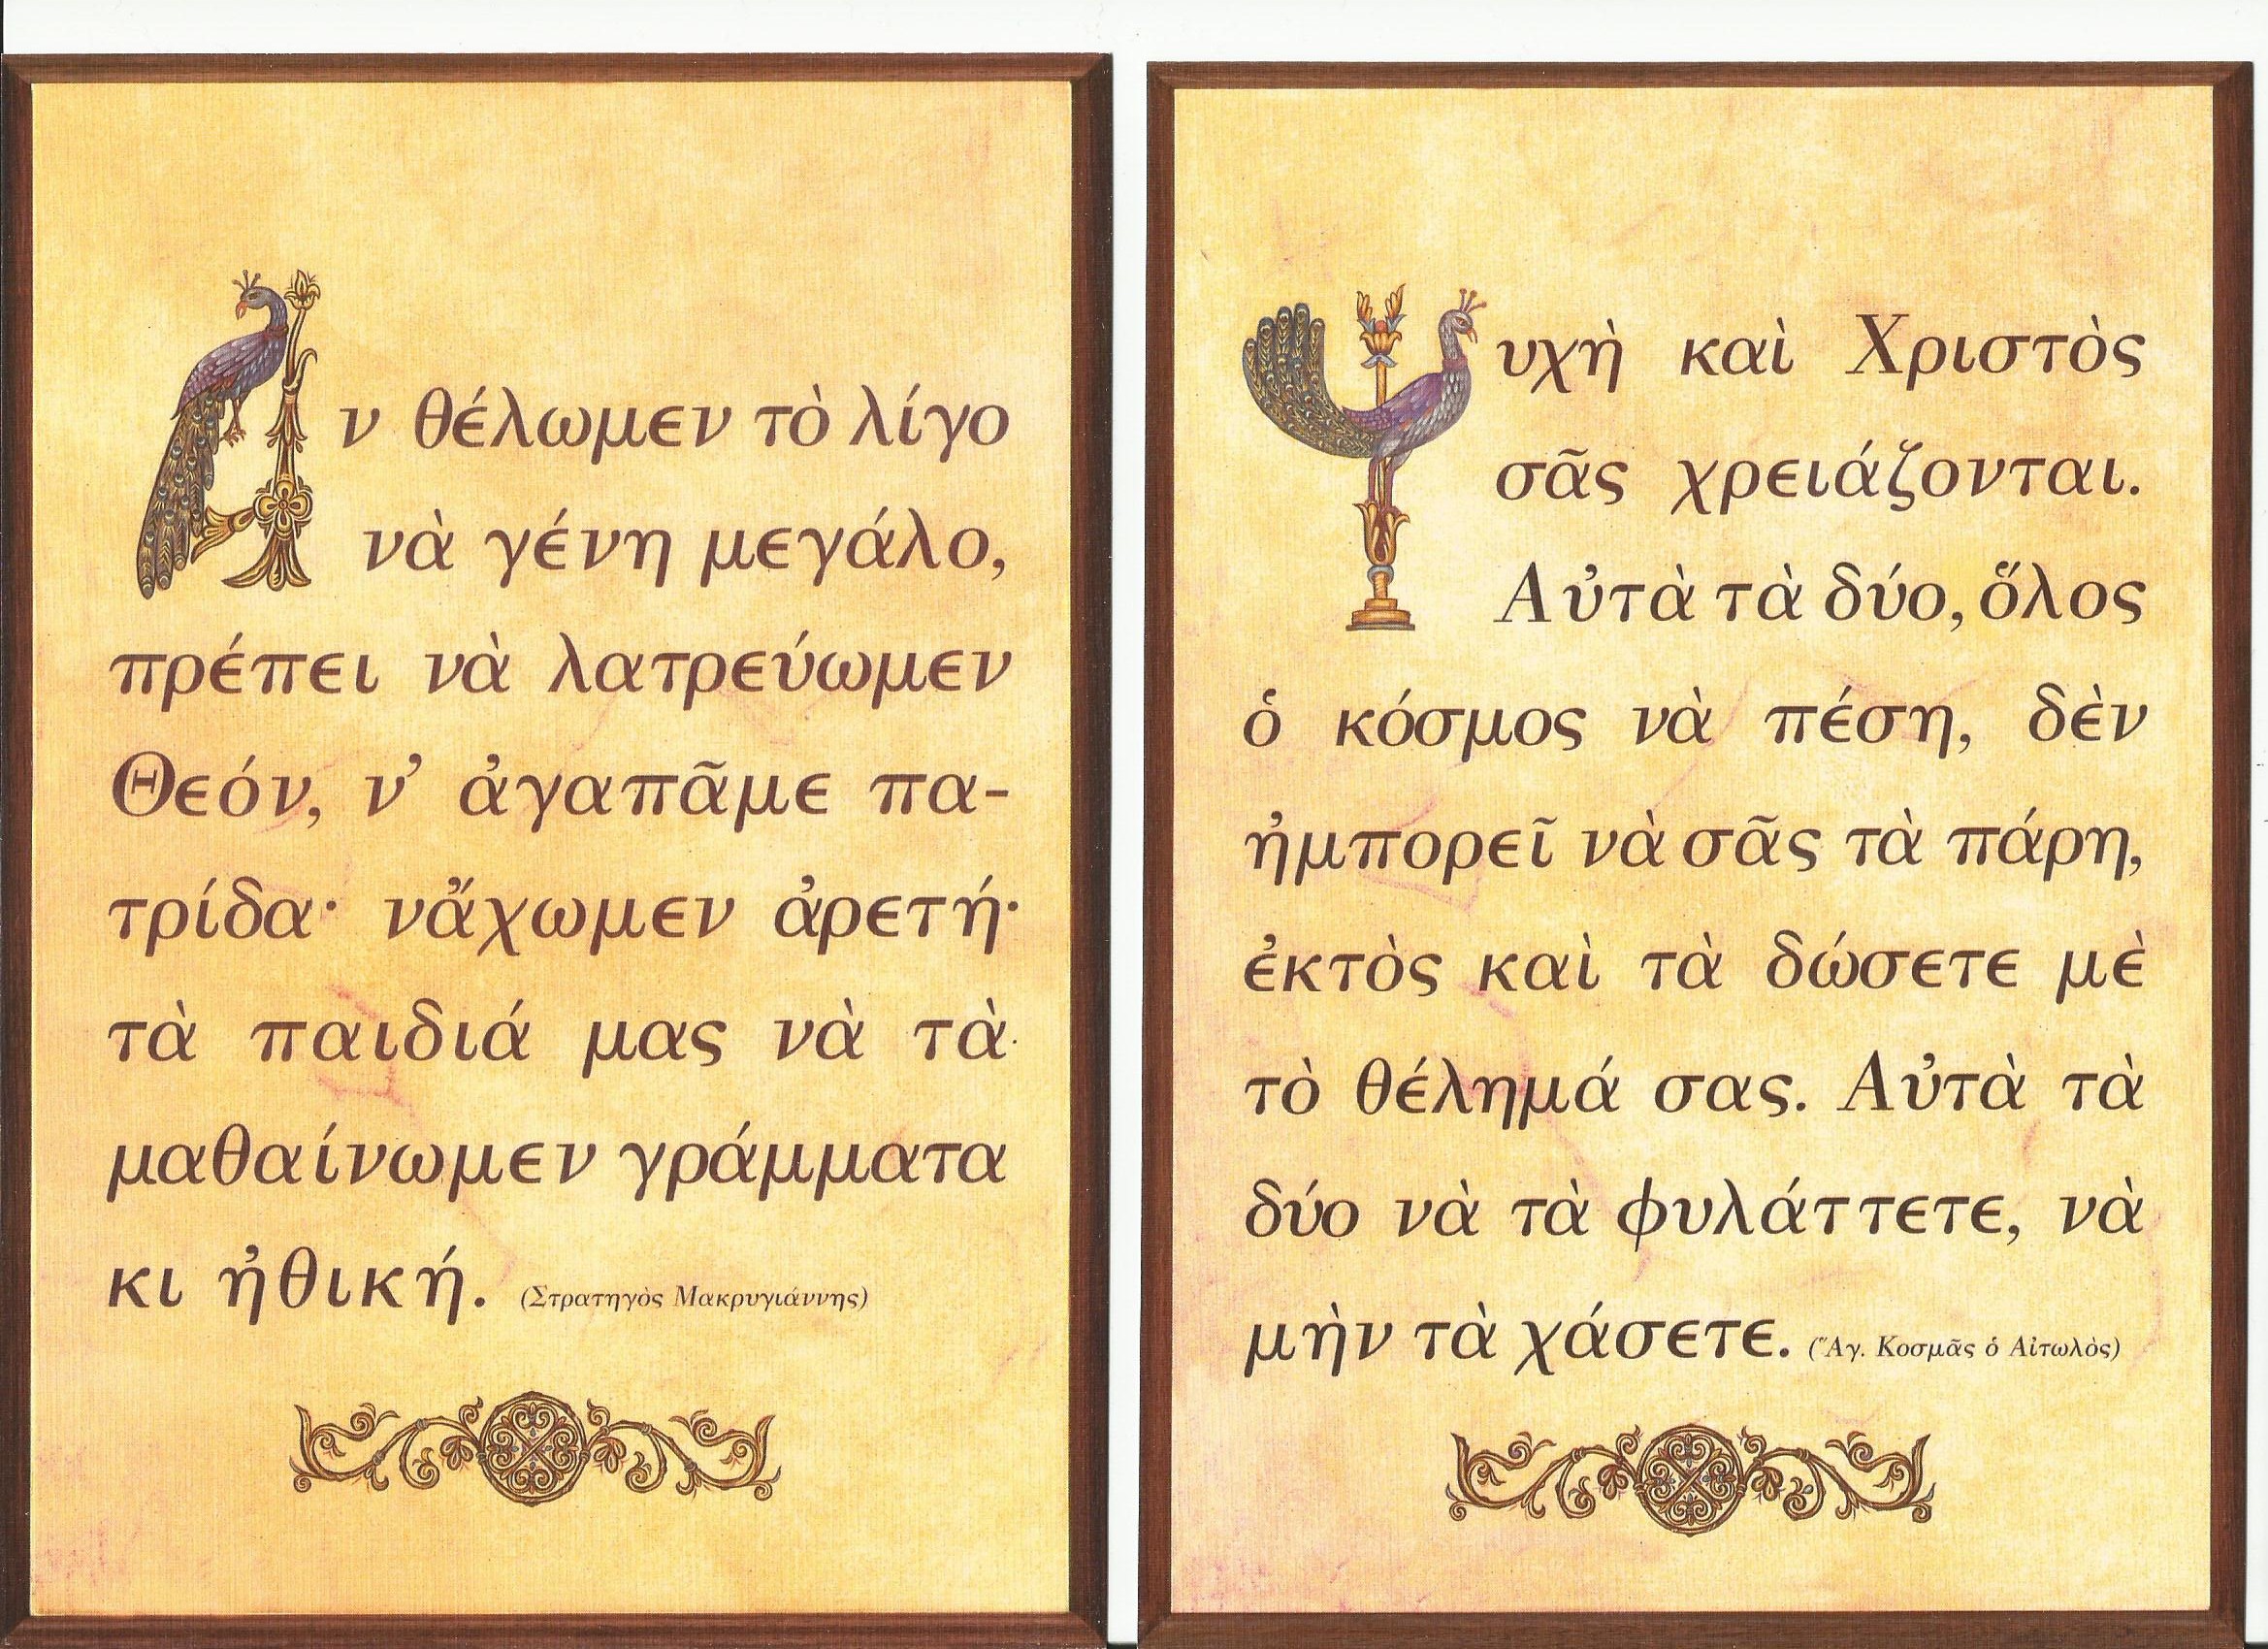 Ἂν θέλωμεν τὸ λίγο
νὰ γένη μεγάλο,
πρέπει νὰ λατρεύωμεν
Θεόν, ν’ ἀγαπᾶμε πα-
τρίδα· νἄχωμεν ἀρετή·
τὰ παιδιά μας νὰ τὰ
μαθαίνωμεν γράμματα
κι ἠθική. (Στρατηγὸς Μακρυγιάννης)
Ψυχὴ καὶ Χριστὸς
σᾶς χρειάζονται.
Αὐτὰ τὰ δύο, ὅλος
ὁ κόσμος νὰ πέση, δὲν
ἠμπορεῖ νὰ σᾶς τὰ πάρη,
ἐκτὸς καὶ τὰ δώσετε μὲ
τὸ θέλημά σας. Αὐτὰ τὰ
δύο νὰ τὰ φυλάττετε, νὰ
μὴν τὰ χάσετε. (Ἅγ. Κοσμᾶς ὁ Αἰτωλὸς)